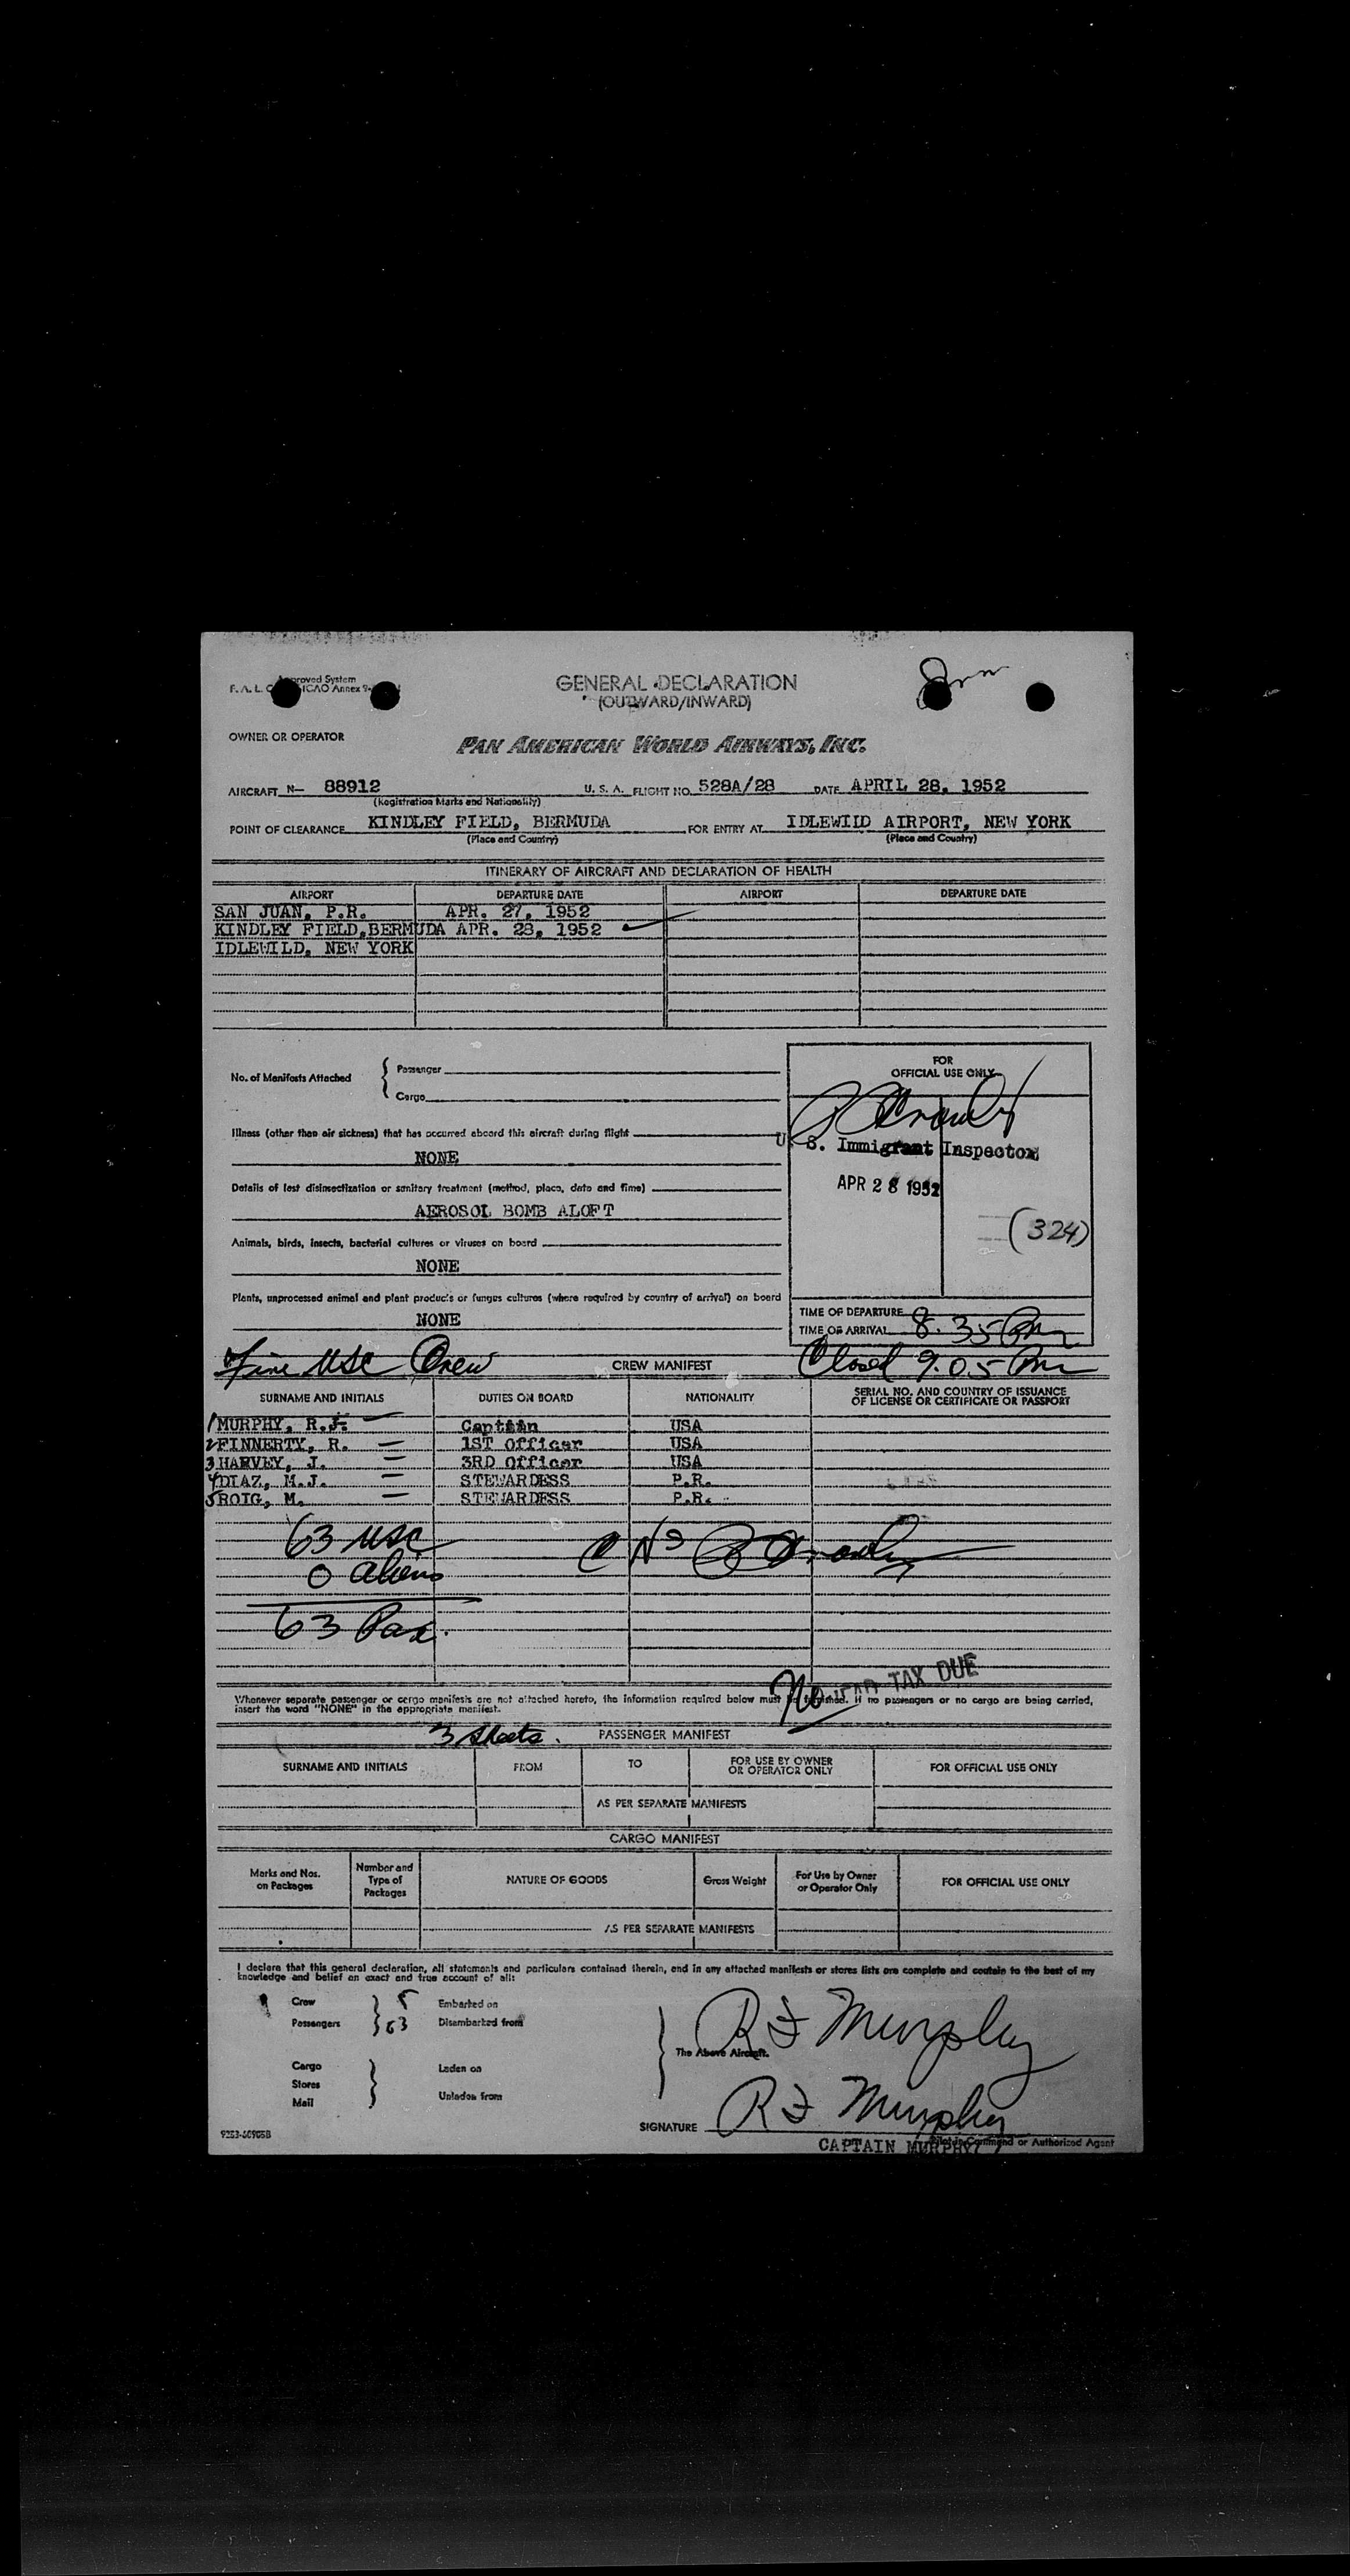 Approved System
F. A. L. C ICAO Annex 9
GENERAL DECLARATION
(OUTWARD/INWARD)
OWNER OR OPERATOR
PAN AMERICAN WORLD AIRWAYS, INC.
AIRCRAFT N— 88912 U. S. A. FLIGHT NO. 528A/28 DATE APRIL 28, 1952
(Registration Marks and Nationality)
POINT OF CLEARANCE KINDLEY FIELD, BERMUDA FOR ENTRY AT IDLEWILD AIRPORT, NEW YORK
(Place and Country) (Place and Country)
ITINERARY OF AIRCRAFT AND DECLARATION OF HEALTH
AIRPORT DEPARTURE DATE AIRPORT DEPARTURE DATE
SAN JUAN, P.R. APR. 27, 1952
KINDLEY FIELD, BERMUDA APR. 28, 1952
IDLEWILD, NEW YORK
No. of Manifests Attached { Passenger
Cargo
FOR
OFFICIAL USE ONLY
Illness (other than air sickness) that has occurred aboard this aircraft during flight
NONE
U. S. Immigrant Inspector
APR 28 1952
(324)
Details of last disinsectization or sanitary treatment (method, place, date and time)
AEROSOL BOMB ALOFT
Animals, birds, insects, bacterial cultures or viruses on board
NONE
Plants, unprocessed animal and plant products or fungus cultures (where required by country of arrival) on board
NONE
TIME OF DEPARTURE
TIME OF ARRIVAL 8.35 Pm
Five USC Crew CREW MANIFEST Closed 9.05 Pm
SURNAME AND INITIALS DUTIES ON BOARD NATIONALITY SERIAL NO. AND COUNTRY OF ISSUANCE
OF LICENSE OR CERTIFICATE OR PASSPORT
1 MURPHY, R.J. Captain USA
2 FINNERTY, R. 1ST Officer USA
3 HARVEY, J. 3RD Officer USA
4 DIAZ, M.J. STEWARDESS P.R.
5 ROIG, M. STEWARDESS P.R.
63 USC
0 aliens
63 Pax.
No HEAD TAX DUE
Whenever separate passenger or cargo manifests are not attached hereto, the information required below must be furnished. If no passengers or no cargo are being carried,
insert the word "NONE" in the appropriate manifest.
3 sheets. PASSENGER MANIFEST
SURNAME AND INITIALS FROM TO FOR USE BY OWNER
OR OPERATOR ONLY FOR OFFICIAL USE ONLY
AS PER SEPARATE MANIFESTS
CARGO MANIFEST
Marks and Nos.
on Packages Number and
Type of
Packages NATURE OF GOODS Gross Weight For Use by Owner
or Operator Only FOR OFFICIAL USE ONLY
AS PER SEPARATE MANIFESTS
I declare that this general declaration, all statements and particulars contained therein, and in any attached manifests or stores lists are complete and contain to the best of my
knowledge and belief an exact and true account of all:
Crew } 5 Embarked on
Passengers } 63 Disembarked from
The Above Aircraft.
R J Murphy
Cargo Laden on
Stores
Mail Unladen from
SIGNATURE R J Murphy
Pilot in Command or Authorized Agent
CAPTAIN MURPHY
9253-60905B